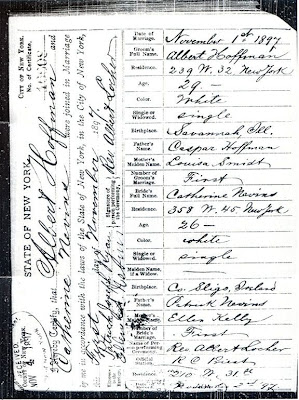 STATE OF NEW YORK.
CITY OF NEW YORK.
No. of Certificate,
I Hereby Certify, that Albert Hoffman and
Catherine Nevins were joined in Marriage
by me in accordance with the laws of the State of New York, in the City of New York,
this First day of November 1897
Witnesses to the Marriage
Signature of person performing the ceremony
Rev Albert Locher
Date of Marriage. November 1st 1897
Groom's Full Name. Albert Hoffman
Residence. 239 W. 32 New York
Age. 29 —
Color. White
Single or Widowed. single
Birthplace. Savannah, Ill.
Father's Name Caspar Hoffman
Mother's Maiden Name. Louisa Smidt
Number of Groom's Marriage. First
Bride's Full Name. Catherine Nevins
Residence. 358 W. 45 New York
Age. 26 —
Color. white
Single or Widowed. single
Maiden Name, if a Widow.
Birthplace. Co. Sligo, Ireland
Father's Name. Patrick Nevins
Mother's Maiden Name. Ellen Kelly
Number of Bride's Marriage. First
Name of Person performing Ceremony. Rev Albert Locher
Official Station. R C Priest
Residence. 210 W. 31st